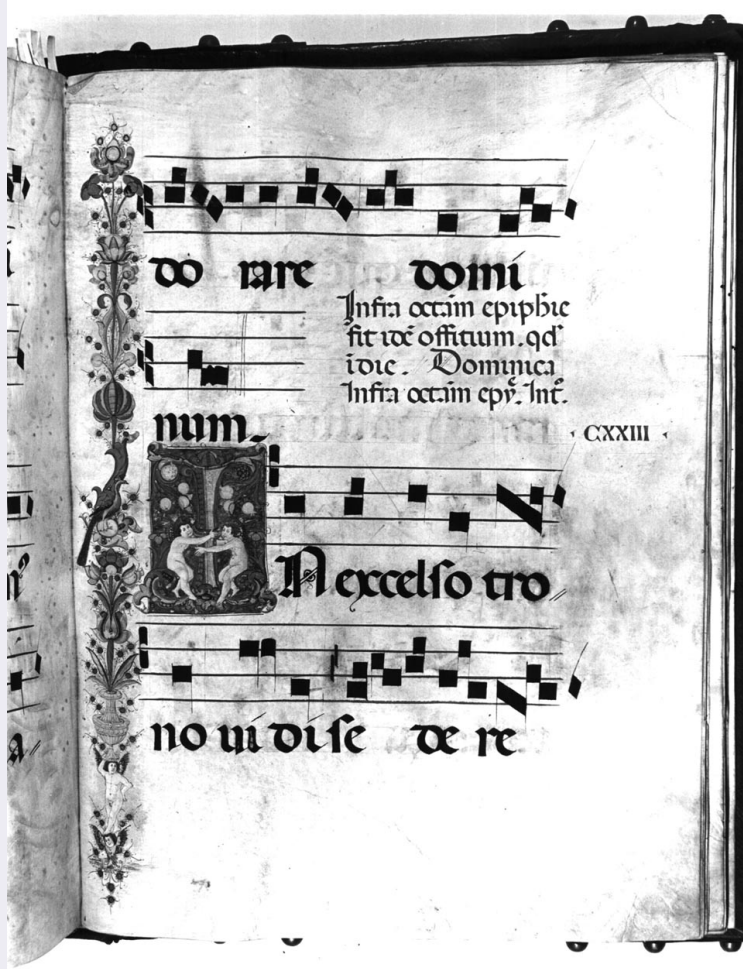 do rare domi
Infra octām epiphīe
fit idē offitium. qd
idie. Dominica
Infra octām epy. Int.
num.
CXXIII
IN excelso tro
no ui di se de re